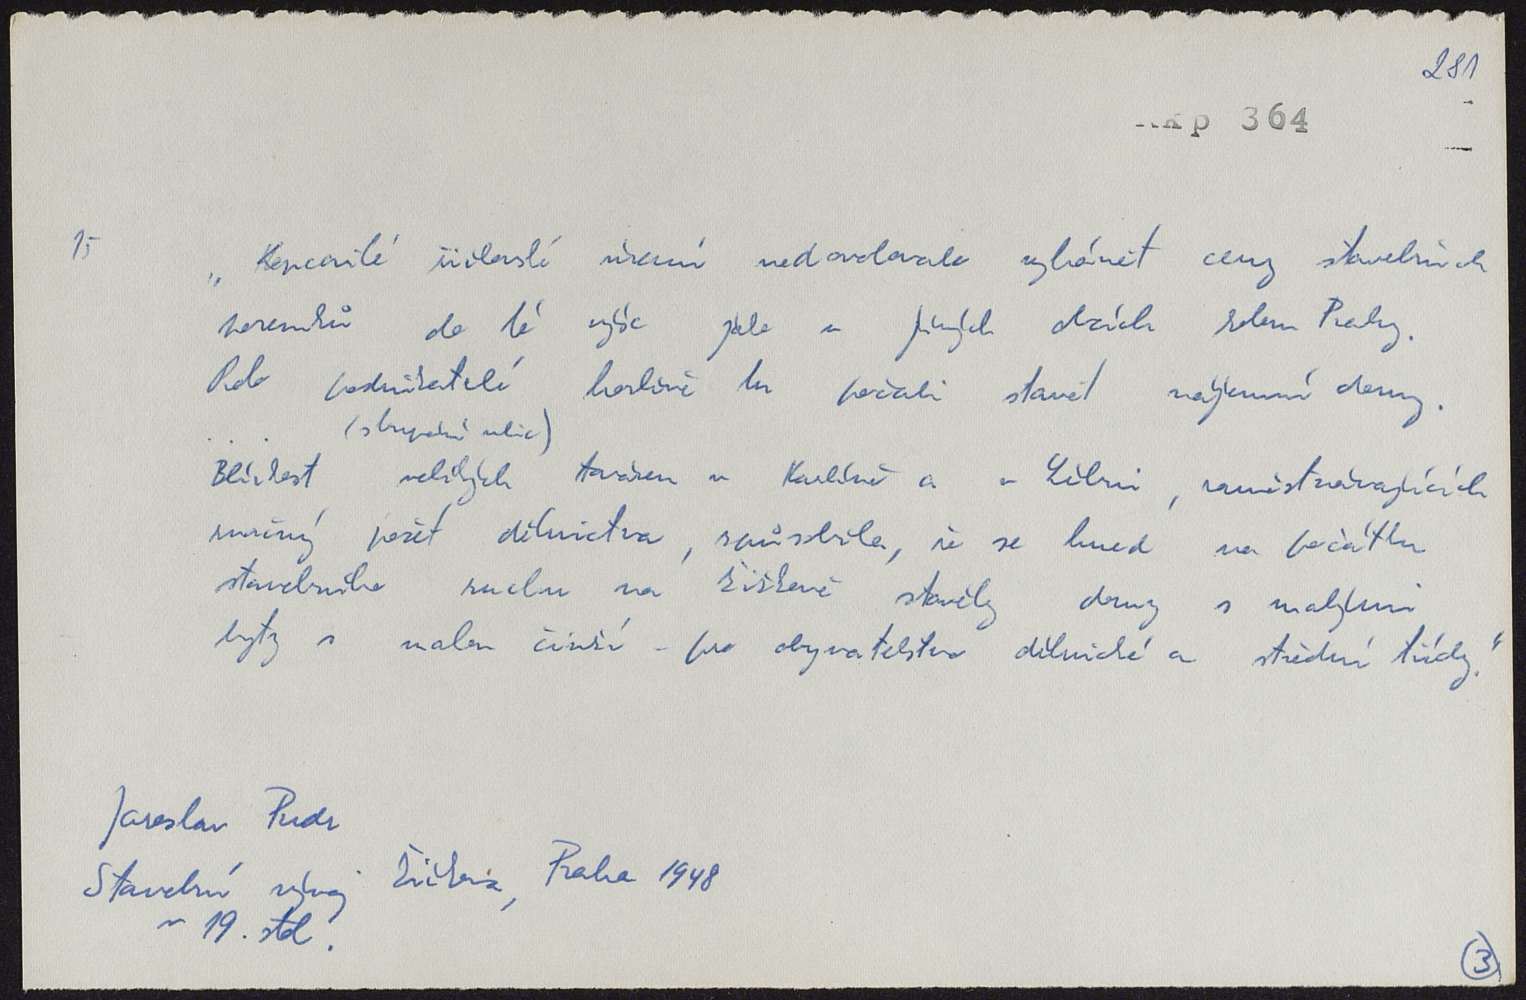 281
Rkp 364
15
„Kopcovité žižkovské území nedovolovalo vyhánět ceny stavebních
pozemků do té výše jako v jiných obcích kolem Prahy.
Proto podnikatelé horlivě tu počali stavět nájemní domy.
. . . (stoupání ulic)
Blízkost velikých továren v Karlíně a v Libni, zaměstnávajících
značný počet dělnictva, způsobila, že se hned na počátku
stavebního ruchu na Žižkově stavěly domy s malými
byty s malou činží - pro obyvatelstvo dělnické a střední třídy."
Jaroslav Pudr
Stavební vývoj Žižkova, Praha 1948
v 19. stol.
3